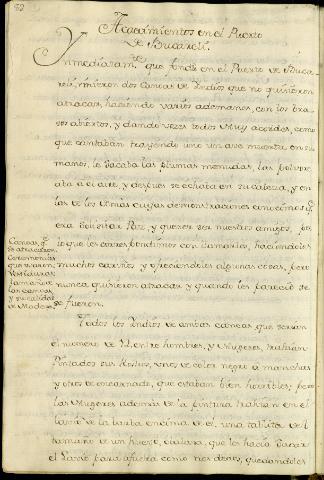 82
Acaecimientos en el Puerto
de Bucareli.
Ynmediatam.te que fondié en el Puerto de Buca-
reli, vinieron dos Canoas de Indios que no quisieron
atracar, haciendo varios ademanes, con los bra-
zos abiertos, y dando vozes todos muy acordes, como
que cantaban trayendo uno un ave muerta, en su
mano, le sacaba las plumas menudas, las polvore-
aba al aire, y despues se echaba en su caveza, y en
las de los demás cuyas demonstraciones conocimos q.e
era solicitar Paz, y querer ser nuestros amigos, por
lo que les correspondimos con llamarlos, haciendoles
muchos cariños y ofreciendoles algunas cosas, pero
nunca quisieron atracar y quando les pareció se
se fueron.
Canoas, q.e
se atracaron
Ceremonias
que usaron,
Vestiduras
tamaño de
las canoas
y su calidad
de Madera
Todos los Indios de ambas canoas que serían
el numero de 12, entre hombres, y Mugeres, trahían
Pintados sus Rostros, unos de color negro a manchas
y otros de encarnado, que estaban bien horribles; pero
las Mugeres además de la pintura trahían en el
labio de la barba encima de el, una tablita del
tamaño de un huevo, que les hacía sacar
el Labio para afuera como dos dedos, quedandoles